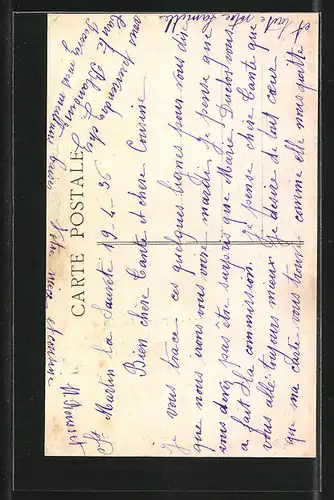 CARTE POSTALE
St Martin la Sauveté 19-4-36
Bien chère Tante et chère Cousine
Je vous trace ces quelques lignes pour vous dire
que nous irons vous voire mardi je pense que
vous devez pas être surpris que Marie Duclos vous
a fait la commission. Je pense chère Tante que
vous alle toujours mieux Je desire de tout cœur
que ma carte vous trouve comme elle nous quitte
et toute notre famille
vous
chez
Recevez nos meilleurs baisers
Votre nièce et cousine